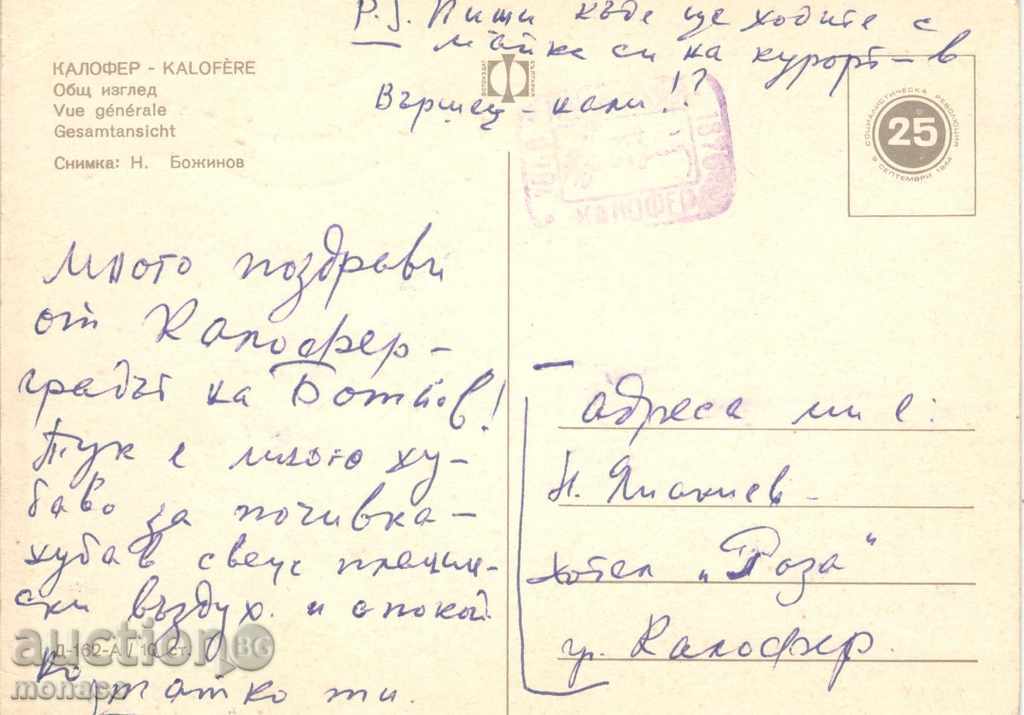 P.S. Пиши къде ще ходите с
майка си на курорт - в
Вършец - кали!?
КАЛОФЕР - KALOFÈRE
Общ изглед
Vue générale
Gesamtansicht
Снимка: Н. Божинов
СОЦИАЛИСТИЧЕСКА РЕВОЛЮЦИЯ
25
9 СЕПТЕМВРИ 1944
КАЛОФЕР
Много поздрави
от Калофер -
градът на Ботйов!
Тук е много ху-
баво за почивка -
хубав свеж планин-
ски въздух и спокой
но татко ти.
адреса ми е:
Н. Янакиев -
хотел „Роза"
гр. Калофер
Д-162-А / 10 ст.
auction BG
monasa